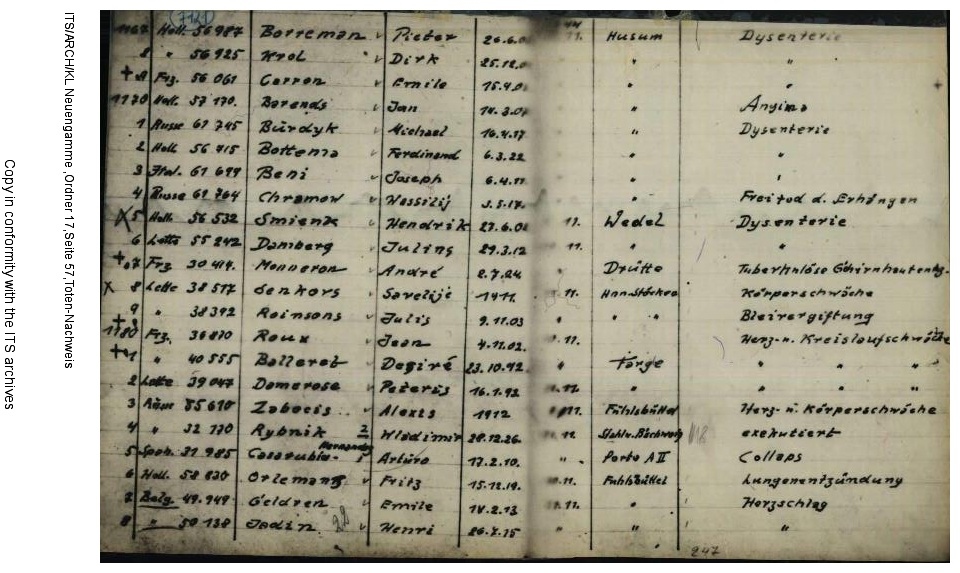 ITS/ARCH/KL Neuengamme, Ordner 17, Seite 57, Toten-Nachweis
Copy in conformity with the ITS archives
(721)
1167 Holl. 56987 Borreman Pieter 26.6.0 11. Husum Dysenterie
8 " 56925 Krol Dirk 25.12.0 " "
+ 9 Frz. 56061 Carron Emile 15.4.0 "
1170 Holl. 57170. Barends Jan 14.3.0 " Angina
1 Russe 61745 Burdyk Michael 16.4.17 " Dysenterie
2 Holl. 56715 Bottema Ferdinand 6.3.22 " "
3 Ital. 61699 Beni Joseph 6.4.11 " "
4 Russe 61764 Chramow Wassilij 3.5.17. " Freitod d. Erhängen
X 5 Holl. 56532 Smienk Hendrik 27.6.0 11. Wedel Dysenterie
6 Lette 55242 Damberg Julins 29.3.12 11. " "
+ 7 Frz. 30414. Monneron André 2.7.24 " Drütte
X 8 Lette 38517 Senkors Savelije 1411. 11. Körperschwäche
+ 9 " 38392 Rainsons Julis 9.11.03 " " " Bleivergiftung
1180 Frz. 36870 Roux Jean 4.11.02. 11. Herz- u. Kreislaufschwäche
+ 1 " 40555 Balleret Degiré 23.10.92 " Farge " " "
2 Lette 39047 Damerose Peteris 16.1.92 11. " " " "
3 85610 Alexis 1912 11. Fuhlsbüttel Herz- u. Körperschwäche
4 " 32170 Rybnik 2 Wladimir 28.12.26. 11. exekutiert
5 Span. 31985 Casarubia- Hernandez Arturo 17.2.10. " Porta A II Collaps
6 Holl. 58830 Orlemans Fritz 15.12.19. 11. Fuhlsbüttel Lungenentzündung
7 Belg. 49.949 Geldren Emile 14.2.13 11. " Herzschlag
8 " 50138 Jadin 22 Henri 26.7.15 " " "
247